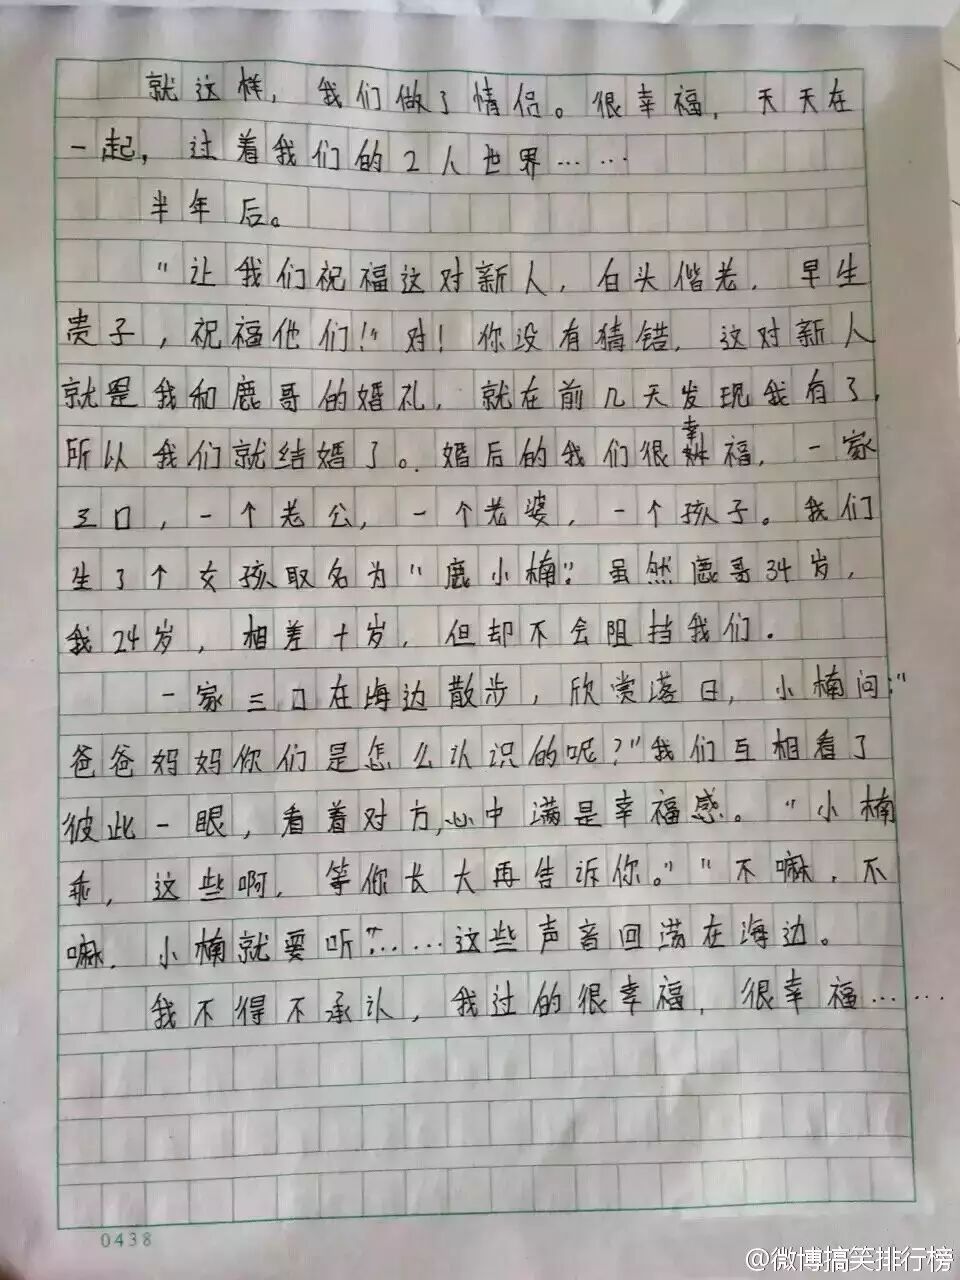 就这样，我们做了情侣。很幸福，天天在
一起，过着我们的2人世界……
半年后。
“让我们祝福这对新人，白头偕老，早生
贵子，祝福他们！”对！你没有猜错，这对新人
就是我和鹿哥的婚礼，就在前几天发现我有了，
所以我们就结婚了。婚后的我们很幸福，一家
三口，一个老公，一个老婆，一个孩子。我们
生了个女孩取名为“鹿小楠”。虽然鹿哥34岁，
我24岁，相差十岁，但却不会阻挡我们。
一家三口在海边散步，欣赏落日，小楠问：“
爸爸妈妈你们是怎么认识的呢？”我们互相看了
彼此一眼，看着对方，心中满是幸福感。“小楠
乖，这些啊，等你长大再告诉你。”“不嘛，不
嘛，小楠就要听”……这些声音回荡在海边。
我不得不承认，我过的很幸福，很幸福……
0438
@微博搞笑排行榜